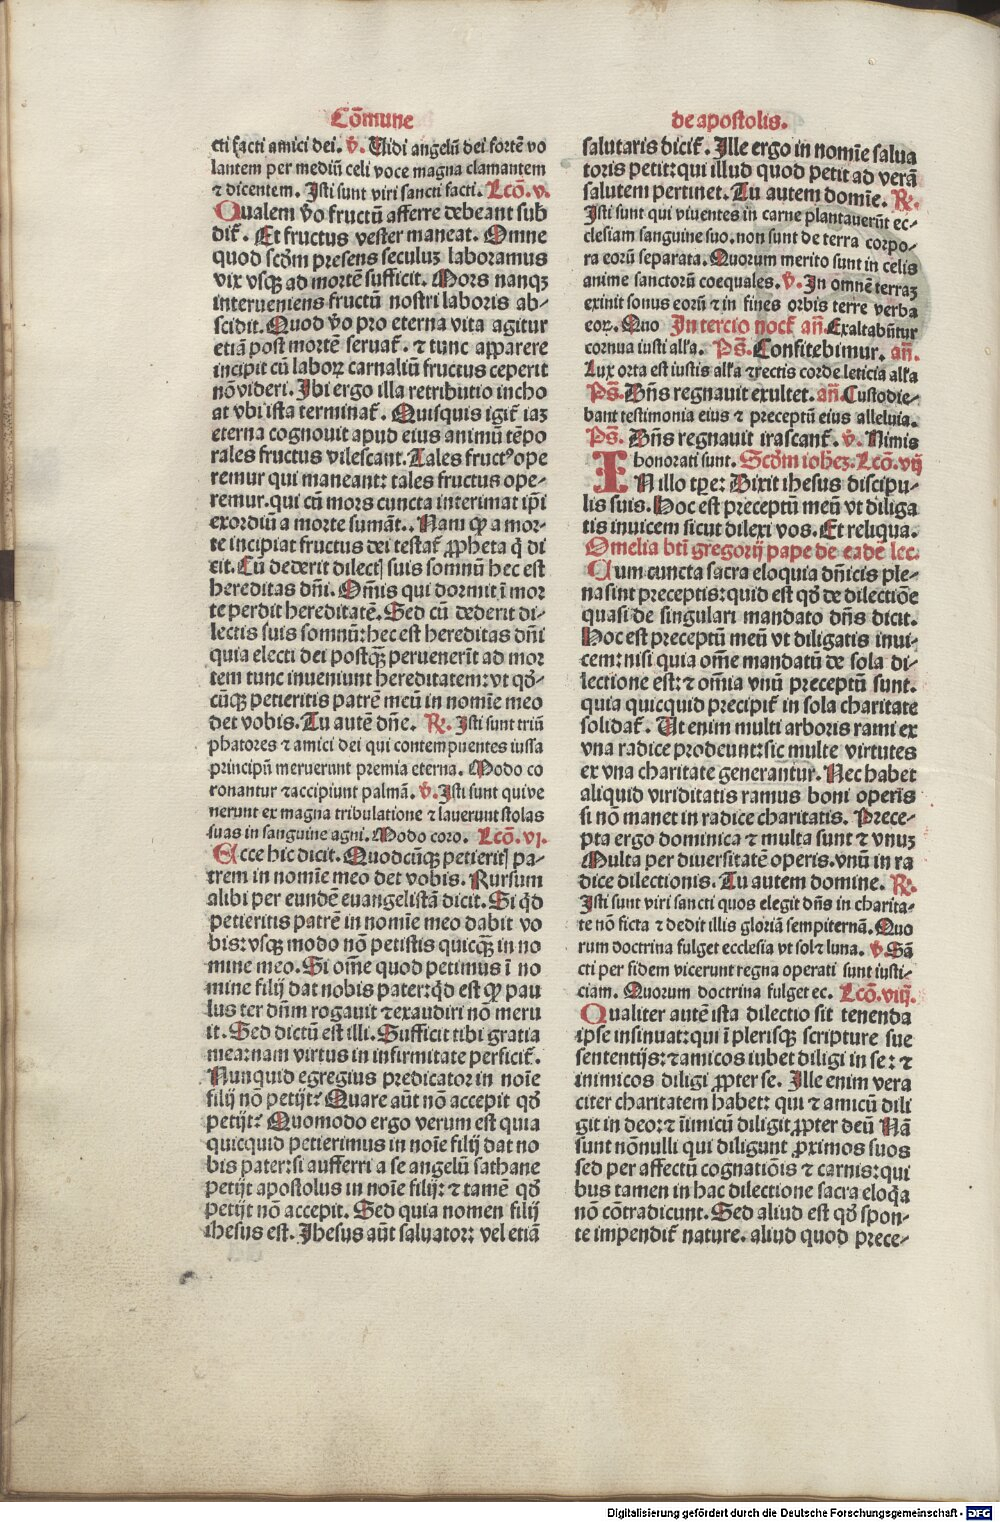 Cōmune
cti facti amici dei. v̄. Vidi angelū dei fortē vo
lantem per mediū celi voce magna clamantem
⁊ dicentem. Isti sunt viri sancti facti. Lcō. v.
Qualem v̄o fructū afferre debeant sub
dit̄. Et fructus vester maneat. Omne
quod scd̄m presens seculuꝫ laboramus
vix vsqꝫ ad mortē sufficit. Mors nanqꝫ
interueniens fructū nostri laboris ab-
scidit. Quod v̄o pro eterna vita agitur
etiā post mortē seruat̄. ⁊ tunc apparere
incipit cū laboꝝ carnaliū fructus ceperit
nō videri. Ibi ergo illa retributio incho
at vbi ista terminat̄. Quisquis igit̄ iaꝫ
eterna cognouit apud eius animū tēpo
rales fructus vilescant. Tales fructꝰ ope
remur qui maneant: tales fructus ope-
remur. qui cū mors cuncta interimat ip̄i
exordiū a morte sumāt.. Nam ꝙ a mor-
te incipiat fructus dei testat̄ ꝓpheta q̄ di
cit. Cū dederit dilectꝭ suis somnū hec est
hereditas dn̄i. Om̄is qui dormit ī mor
te perdit hereditatē. Sed cū dederit di-
lectis suis somnū: hec est hereditas dn̄i
quia electi dei postqꝫ̄ peruenerīt ad mor
tem tunc inueniunt hereditatem: vt qđ-
cūqꝫ petieritis patrē meū in nomīe meo
det vobis. Tu autē dn̄e. R̄. Isti sunt triū
phatores ⁊ amici dei qui contempnentes iussa
principū meruerunt premia eterna. Modo co
ronantur ⁊ accipiunt palmā. v̄. Isti sunt qui ve
nerunt ex magna tribulatione ⁊ lauerunt stolas
suas in sanguine agni. Modo coro. Lcō. vj.
Ecce hic dicit. Quodcūqꝫ petieritꝭ pa-
trem in nomīe meo det vobis. Rursum
alibi per eundē euangelistā dicit. Si qđ
petieritis patrē in nomīe meo dabit vo
bis: vsqꝫ modo nō petistis quicqꝫ̄ in no
mine meo. Si om̄e quod petimus ī no
mine filij dat nobis pater: qđ est ꝙ pau
lus ter dn̄m rogauit ⁊ exaudiri nō meru
it. Sed dictū est illi. Sufficit tibi gratia
mea: nam virtus in infirmitate perficit̄.
Nunquid egregius predicator in noīe
filij nō petijt? Quare aūt nō accepit qđ
petijt? Quomodo ergo verum est quia
quicquid petierimus in noīe filij dat no
bis pater: si aufferri a se angelū sathane
petijt apostolus in noīe filij: ⁊ tamē qđ
petijt nō accepit. Sed quia nomen filij
ihesus est. Ihesus aūt saluator: vel etiā
de apostolis.
salutaris dicit̄. Ille ergo in nomīe salua
toris petit: qui illud quod petit ad verā
salutem pertinet. Tu autem domīe. R̄.
Isti sunt qui viuentes in carne plantauerūt ec-
clesiam sanguine suo. non sunt de terra corpo-
ra eorū separata. Quorum merito sunt in celis
anime sanctorū coequales. v̄. In omnē terraꝫ
exinit sonus eorū ⁊ in fines orbis terre verba
eoꝝ. Quo In tercio noct̄ an̄. Exaltabūtur
cornua iusti alła. Ps̄. Confitebimur. an̄.
Lux orta est iustis alła ⁊ rectis corde leticia alła
Ps̄. Dn̄s regnauit exultet. an̄. Custodie-
bant testimonia eius ⁊ preceptū eius alleluia.
Ps̄. Dn̄s regnauit irascant̄. v̄. Nimis
honorati sunt. Scd̄m ioh̄eꝫ. Lcō. vij
IN illo tp̄e: Dixit ihesus discipu-
lis suis. Hoc est preceptū meū vt diliga
tis inuicem sicut dilexi vos. Et reliqua.
Omelia bt̄i gregorij pape de eadē lec.
Cum cuncta sacra eloquia dn̄icis ple-
na sint preceptis: quid est qđ de dilectiōe
quasi de singulari mandato dn̄s dicit.
Hoc est preceptū meū vt diligatis inui-
cem: nisi quia om̄e mandatū de sola di-
lectione est: ⁊ om̄ia vnū preceptū sunt.
quia quicquid precipit̄ in sola charitate
solidat̄. Ut enim multi arboris rami ex
vna radice prodeunt: sic multe virtutes
ex vna charitate generantur. Nec habet
aliquid viriditatis ramus boni operis
si nō manet in radice charitatis. Prece-
pta ergo dominica ⁊ multa sunt ⁊ vnuꝫ
Multa per diuersitatē operis. vnū in ra
dice dilectionis. Tu autem domine. R̄.
Isti sunt viri sancti quos elegit dn̄s in charita-
te nō ficta ⁊ dedit illis gloriā sempiternā. Quo
rum doctrina fulget ecclesia vt sol ⁊ luna. v̄. Sā
cti per fidem vicerunt regna operati sunt iusti-
ciam. Quorum doctrina fulget ec. Lcō. viij.
Qualiter autē ista dilectio sit tenenda
ipse insinuat: qui ī plerisqꝫ scripture sue
sententijs: ⁊ amicos iubet diligi in se: ⁊
inimicos diligi ꝓpter se. Ille enim vera
citer charitatem habet: qui ⁊ amicū dili
git in deo: ⁊ īimicū diligit ꝓpter deū Nā
sunt nōnulli qui diligunt ꝓximos suos
sed per affectū cognatiōis ⁊ carnis: qui
bus tamen in hac dilectione sacra eloq̄a
nō cōtradicunt. Sed aliud est qđ spon-
te impendit̄ nature. aliud quod prece-
Digitalisierung gefördert durch die Deutsche Forschungsgemeinschaft - DFG